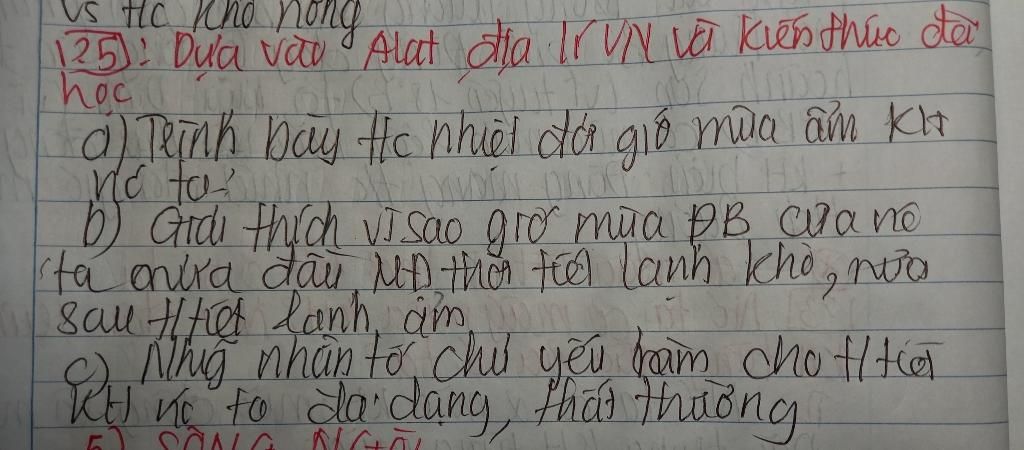 vs Hc khô nóng
125): Dựa vào Alat địa lí VN và kiến thức đã
học
a) Trình bày t/c nhiệt đới gió mùa ẩm KH
nc ta.
b) Giải thích vì sao gió mùa ĐB của nc
ta nửa đầu MĐ thời tiết lạnh khô, nửa
sau t/tiết lạnh ẩm
c) Nhữg nhân tố chủ yếu làm cho t/tiết
KH nc ta đa dạng, thất thường
5) SÔNG NGÒI